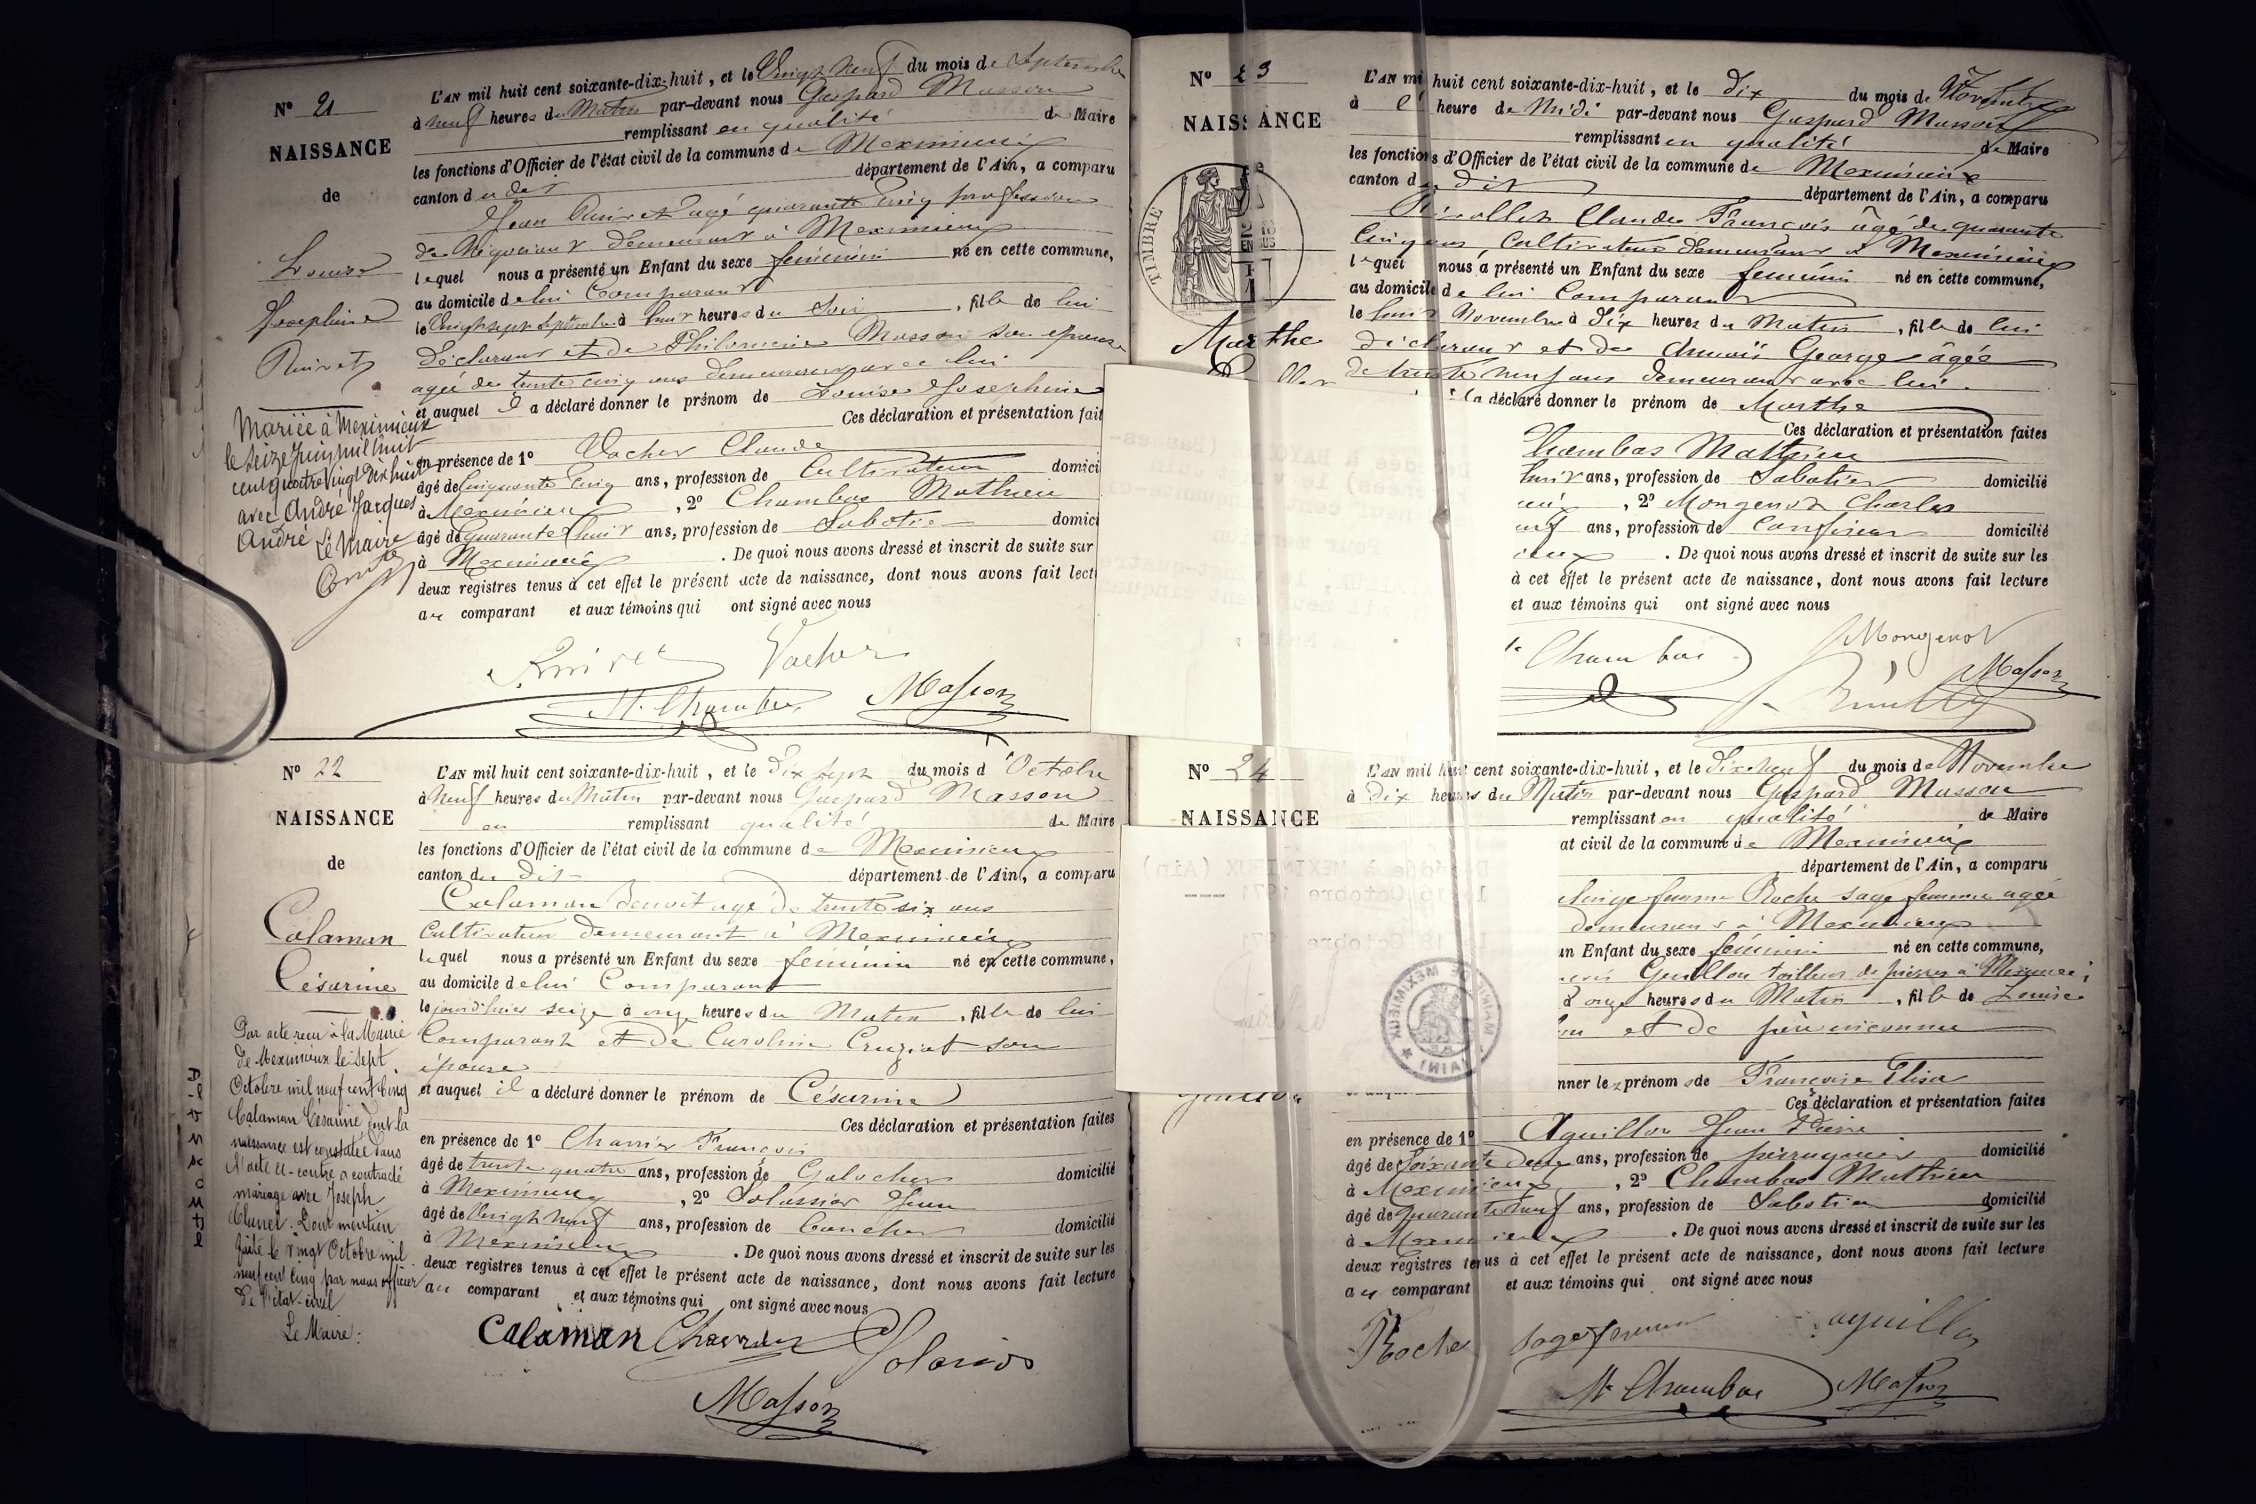 N° 21
NAISSANCE
de
Louise
Joséphine
Mariée à Meximieux
le seize Juin mil huit
cent quatre vingt dix huit
avec André Jacques
André Le Maire
L'AN mil huit cent soixante-dix-huit, et le Vingt neuf du mois de Septembre
à neuf heures du Matin par-devant nous Gaspard Masson
remplissant en qualité de Maire
les fonctions d'Officier de l'état civil de la commune de Meximieux
canton du dit département de l'Ain, a comparu
Jean agé quarante cinq profession
de Négociant demeurant à Meximieux
lequel nous a présenté un Enfant du sexe féminin né en cette commune,
au domicile de lui Comparant
le Vingt sept Septembre à huit heures du Soir, fille de lui
déclarant et de Philomène Masson son épouse
agée de trente cinq ans demeurant avec lui
et auquel il a déclaré donner le prénom de Louise Joséphine
Ces déclaration et présentation fait
en présence de 1° Vacher Claude
âgé de Cinquante Cinq ans, profession de Cultivateur domici
à Meximieux, 2° Chambas Mathieu
âgé de Quarante huit ans, profession de Sabotier domici
à Meximieux. De quoi nous avons dressé et inscrit de suite sur
deux registres tenus à cet effet le présent acte de naissance, dont nous avons fait lect
au comparant et aux témoins qui ont signé avec nous
Vacher
M. Chambas Masson
N° 22
NAISSANCE
de
Calaman
Césarine
Par acte reçu à la Mairie
de Meximieux le sept
Octobre mil neuf cent cinq
Calaman Césarine dont la
naissance est constatée dans
l'acte ci-contre a contracté
mariage avec Joseph
Clunet. Pour mention
faite le vingt Octobre mil
neuf cent cinq par nous officier
de l'état civil
Le Maire:
L'AN mil huit cent soixante-dix-huit, et le Dix sept du mois d'Octobre
à Neuf heures du Matin par-devant nous Gaspard Masson
en remplissant qualité de Maire
les fonctions d'Officier de l'état civil de la commune de Meximieux
canton du Dit département de l'Ain, a comparu
Calaman Benoit agé de trente six ans
Cultivateur demeurant à Meximieux
lequel nous a présenté un Enfant du sexe féminin né en cette commune,
au domicile de lui Comparant
le jour d'hier seize à onze heures du Matin, fille de lui
Comparant et de Caroline Cruziat son
épouse
et auquel il a déclaré donner le prénom de Césarine
Ces déclaration et présentation faites
en présence de 1° Charrier François
âgé de trente quatre ans, profession de Galocher domicilié
à Meximieux, 2° Jean
âgé de Vingt Neuf ans, profession de domicilié
à Meximieux. De quoi nous avons dressé et inscrit de suite sur les
deux registres tenus à cet effet le présent acte de naissance, dont nous avons fait lecture
au comparant et aux témoins qui ont signé avec nous
Calaman
Masson
N° 23
NAISSANCE
TIMBRE
Marthe
L'AN mil huit cent soixante-dix-huit, et le Dix du mois de Novembre
à heure de Midi par-devant nous Gaspard Masson
remplissant en qualité de Maire
les fonctions d'Officier de l'état civil de la commune de Meximieux
canton du Dit département de l'Ain, a comparu
Claude François âgé de quarante
Cinq ans, Cultivateur demeurant à Meximieux
lequel nous a présenté un Enfant du sexe féminin né en cette commune,
au domicile de lui Comparant
le huit Novembre à Dix heures du Matin, fille de lui
déclarant et de George âgée
de trente neuf ans demeurant avec lui.
a déclaré donner le prénom de Marthe
Ces déclaration et présentation faites
Chambas Mathieu
huit ans, profession de Sabotier domicilié
, 2° Mongenot Charles
ans, profession de Confiseur domicilié
. De quoi nous avons dressé et inscrit de suite sur les
à cet effet le présent acte de naissance, dont nous avons fait lecture
et aux témoins qui ont signé avec nous
Chambas Mongenot
Masson
N° 24
NAISSANCE
L'AN mil huit cent soixante-dix-huit, et le Dix Neuf du mois de Novembre
à Dix heures du Matin par-devant nous Gaspard Masson
remplissant en qualité de Maire
at civil de la commune de Meximieux
département de l'Ain, a comparu
femme Roche sage femme agée
demeurant à Meximieux
un Enfant du sexe féminin né en cette commune,
Guillon tailleur de pierres à Meximieux
à onze heures du Matin, fille de Louise
et de père inconnu
nner les prénoms de Françoise Elisa
Ces déclaration et présentation faites
en présence de 1° Aguillon Jean Pierre
âgé de Soixante deux ans, profession de perruquier domicilié
à Meximieux, 2° Chambas Mathieu
âgé de quarante huit ans, profession de Sabotier domicilié
à Meximieux. De quoi nous avons dressé et inscrit de suite sur les
deux registres tenus à cet effet le présent acte de naissance, dont nous avons fait lecture
au comparant et aux témoins qui ont signé avec nous
Roche sage femme aguillon
M. Chambas Masson
MAIRIE DE MEXIMIEUX
(AIN)